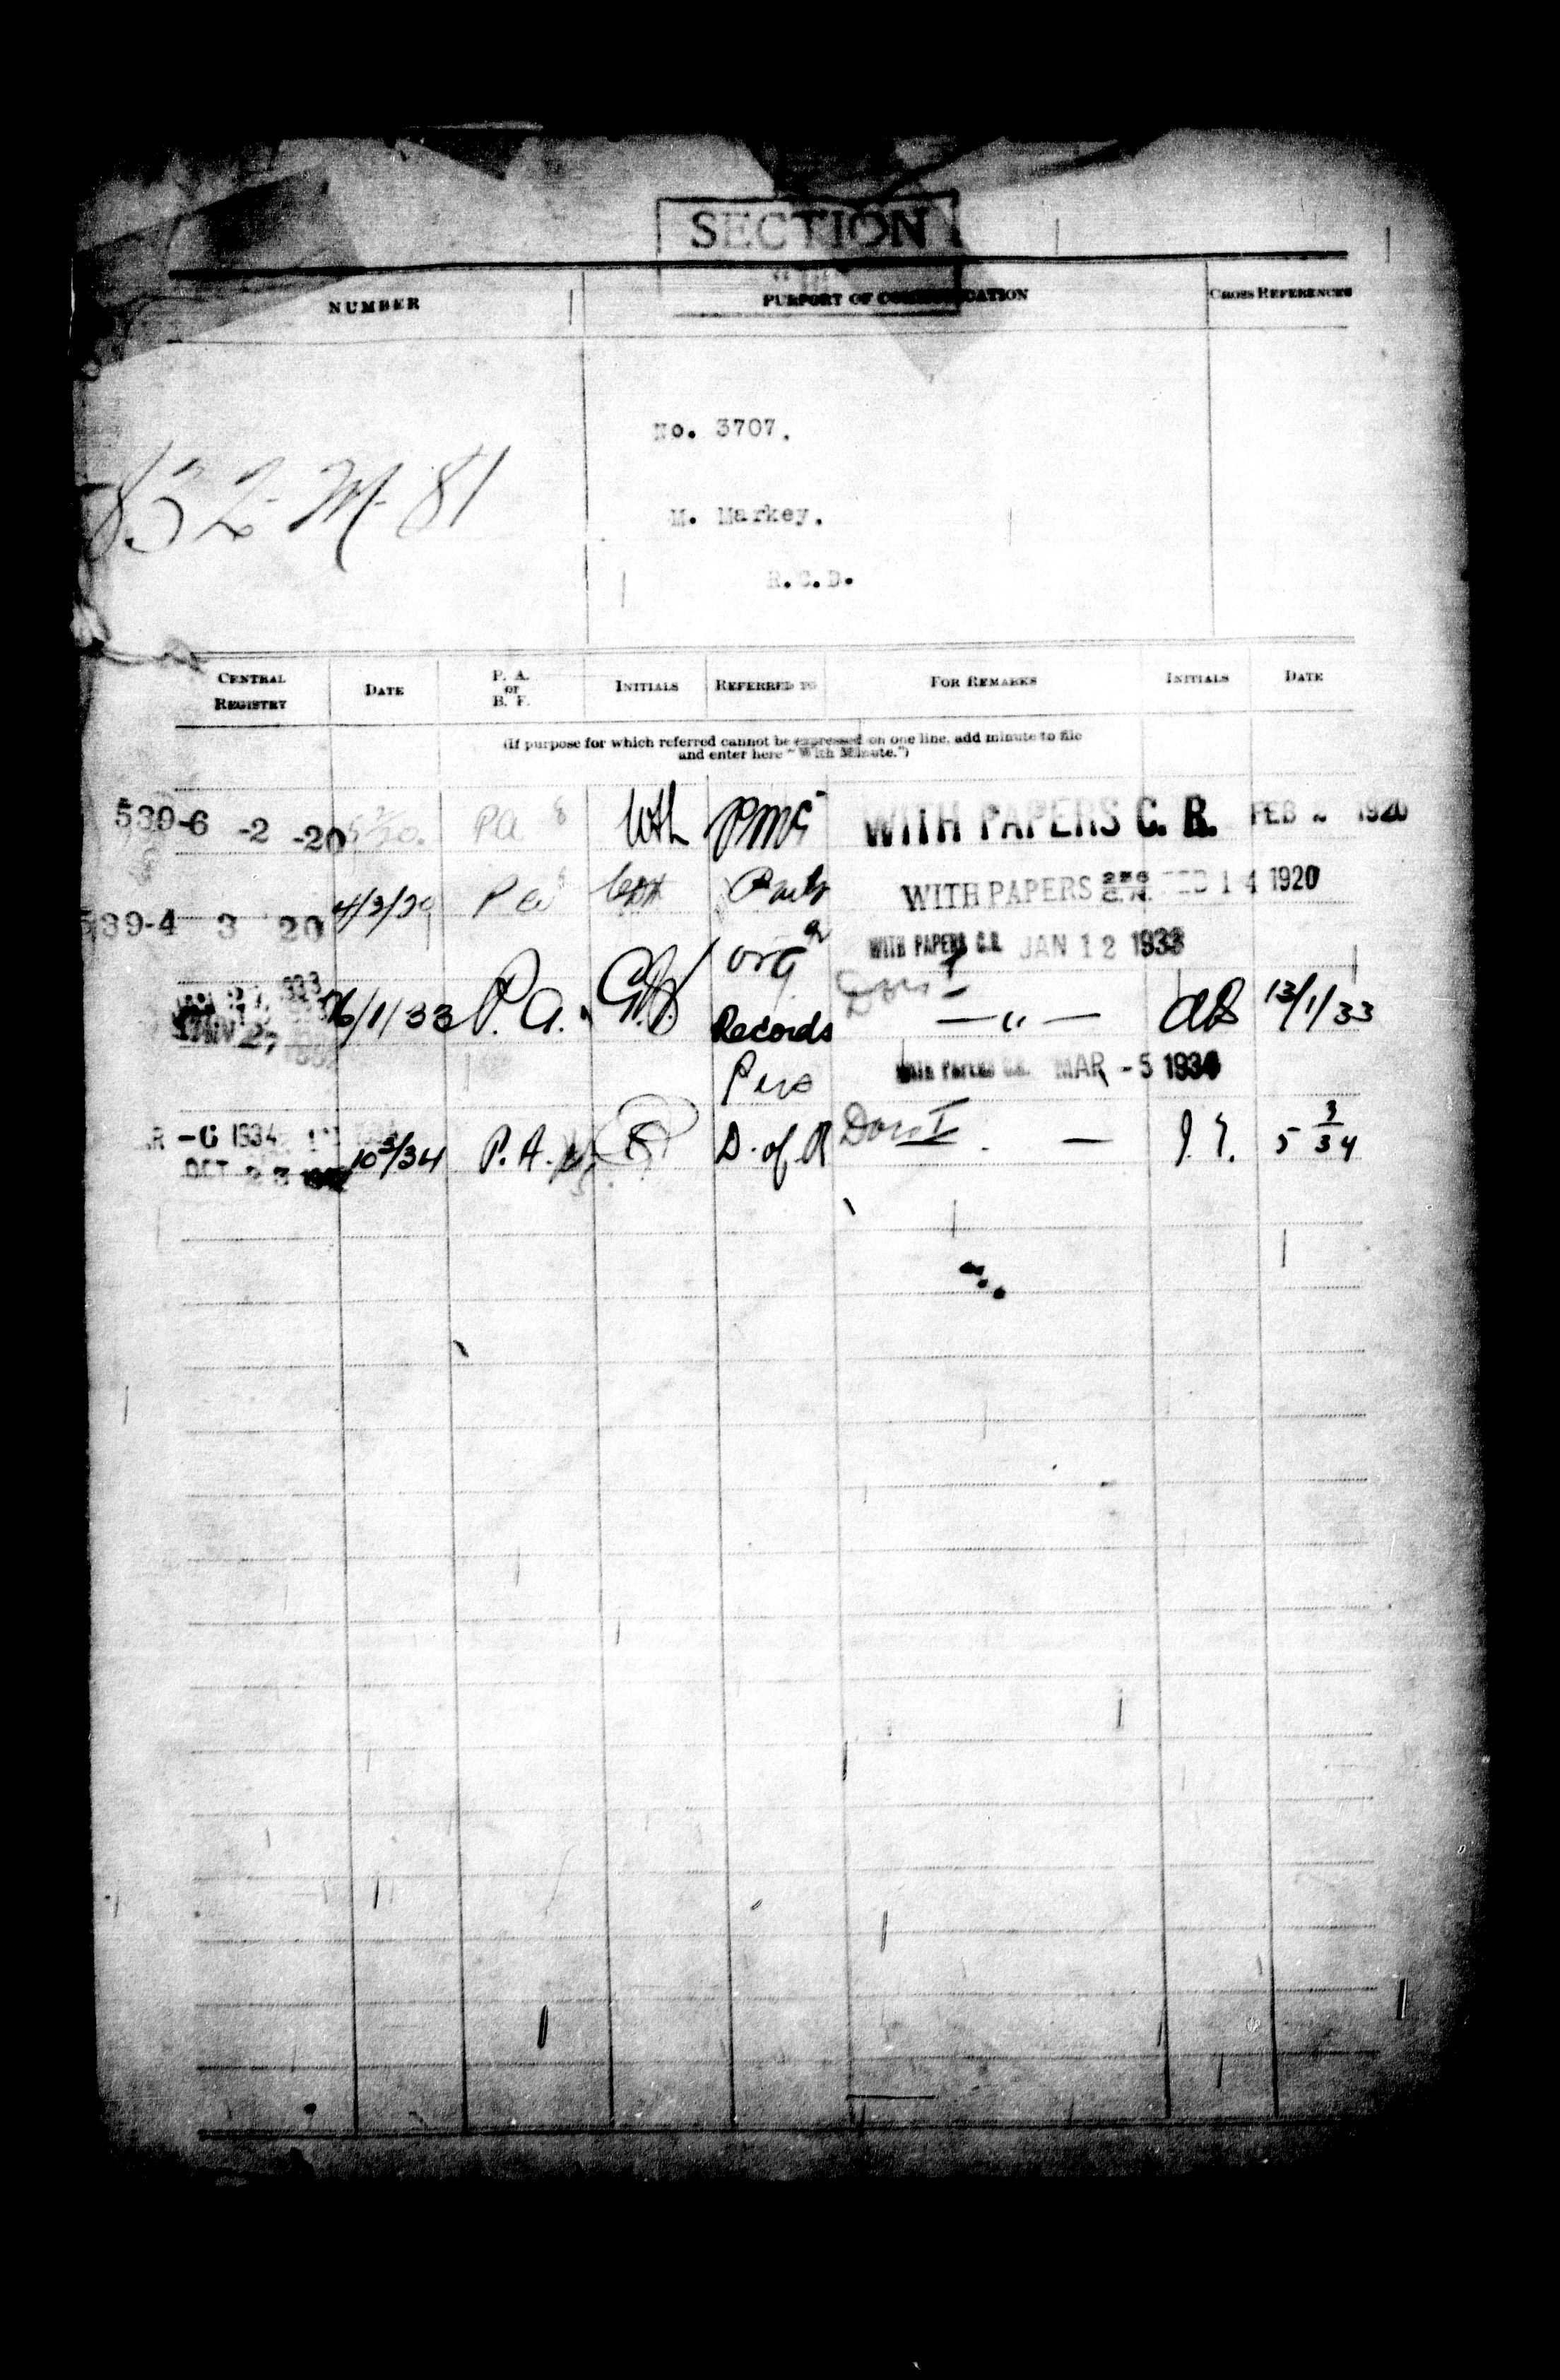 SECTION
NUMBER PURPORT OF COMMUNICATION CROSS REFERENCES
No. 3707.
832-M-81
M. Markey.
R.C.D.
CENTRAL REGISTRY DATE P. A. or B. F. INITIALS REFERRED TO FOR REMARKS INITIALS DATE
(If purpose for which referred cannot be expressed on one line, add minute to file
and enter here "With Minute.")
539-6 -2 -20 PA WITH PAPERS C. R. FEB 1920
539-4 3 20 4/3/20 PA WITH PAPERS FEB 14 1920
Org WITH PAPERS C.R. JAN 12 1933
16/1/33 P.A. Records — " — 13/1/33
WITH PAPERS C.R. MAR -5 1934
-6 1934 10 3/34 P.A. D. of R — J. Y. 5 3/34
OCT 23